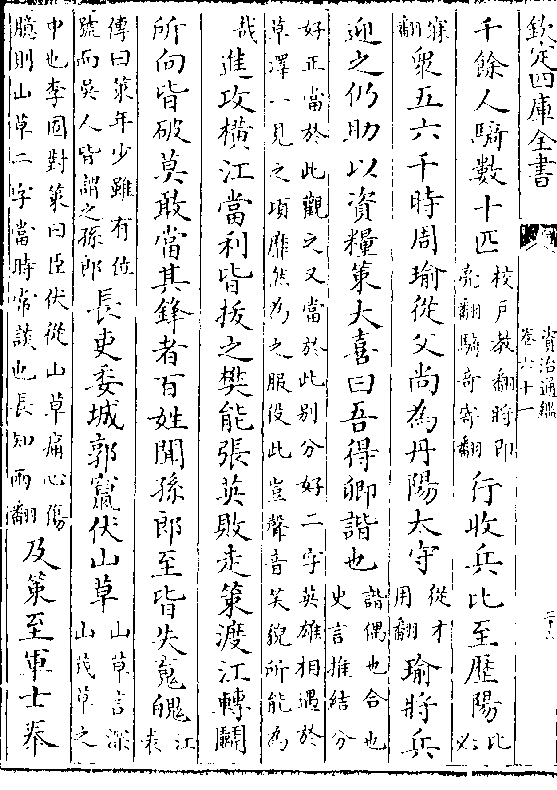 欽定四庫全書
資治通鑑
卷六十一
千餘人騎數十匹校戶敎翻將即亮翻騎奇寄翻行收兵比至歷陽比必
寐翻衆五六千時周瑜從父尚為丹陽太守從才用翻瑜將兵
迎之仍助以資糧策大喜曰吾得卿諧也諧偶也合也史言推結分
好正當於此觀之又當於此别分好二字英雄相遇於草澤一見之項靡然為之服役此豈聲音笑貌所能為
哉進攻橫江當利皆拔之樊能張英敗走策渡江轉鬬
所向皆破莫敢當其鋒者百姓聞孫郎至皆失魂魄江表
傳曰策年少雖有位號而吳人皆謂之孫郎長吏委城郭竄伏山草山草言深山茂草之
中也李固對策曰臣伏從山草痛心傷臆則山草二字當時常談也長知兩翻及策至軍士奉